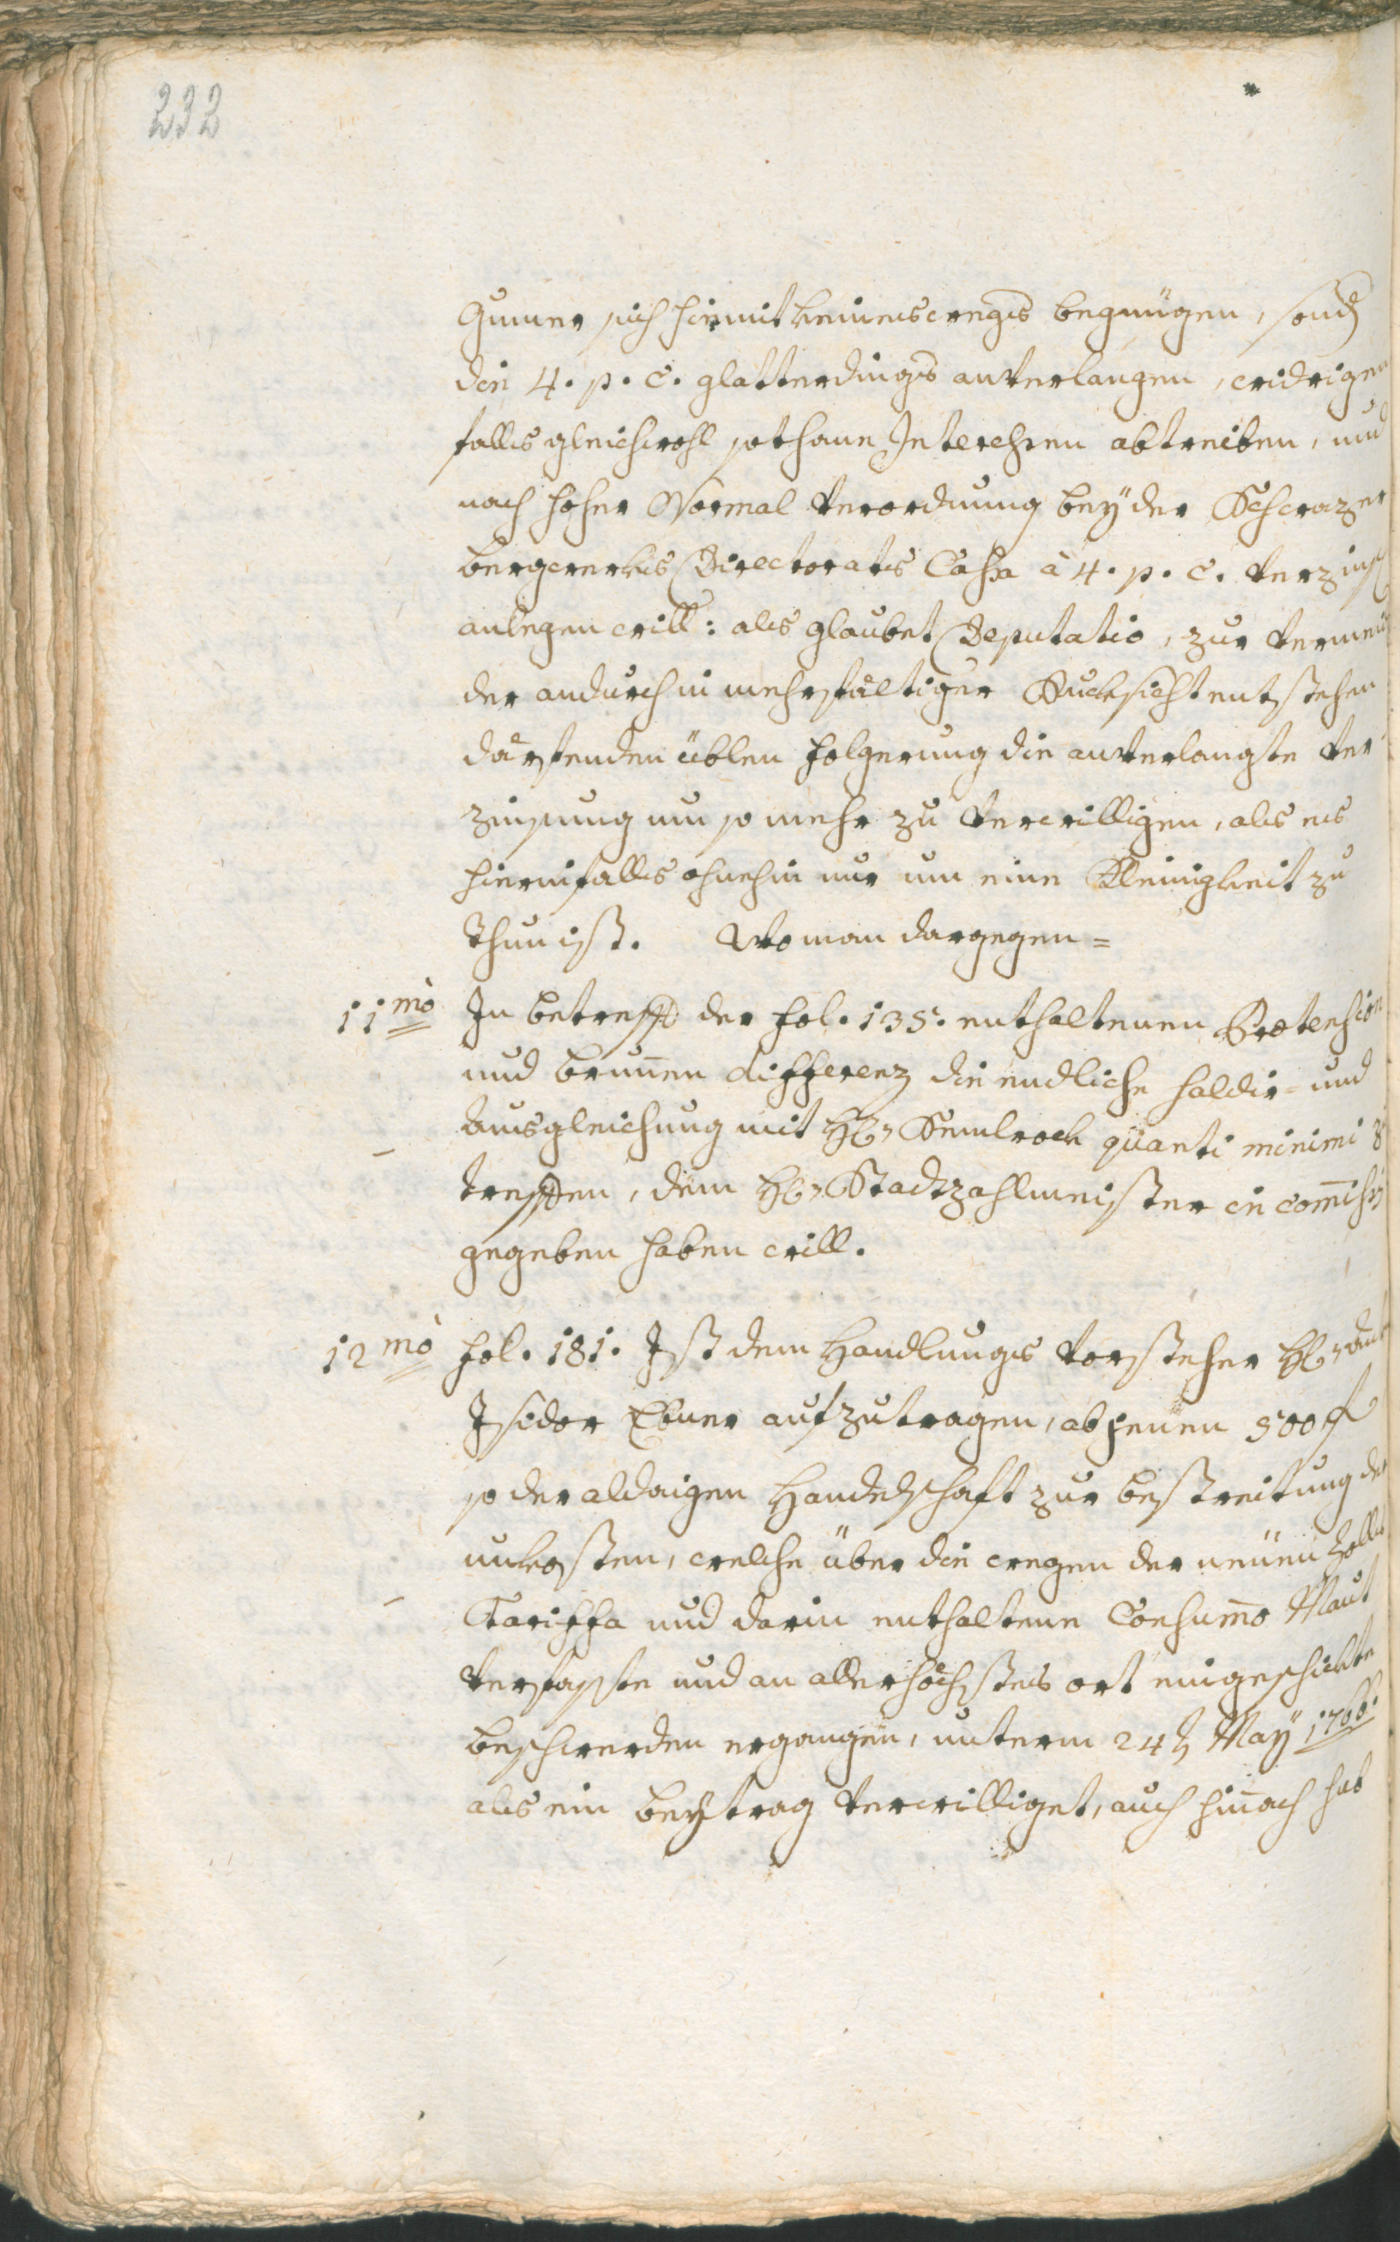 232
Gunner sich hiemit keineswegs begnügen, sond
die 4. p. c. glatterdings anverlangen, widrigen
falls gleichwohl sothane Interessen abtreiben, und
nach hoher Normal verordnung beÿ der Schwazer
bergwerks Directorats Cassa à 4. p. c. verzinsl
anlegen will: als glaubet Deputatio, zur vermeid
der andurch in mehrfältiger Rucksicht entstehen
därfenden üblen folgerung die anverlangte ver
zinsung um so mehr zu verwilligen, als es
hierinfalls ohnehin nur um eine Kleinigkeit zu
thun ist. Wo man dargegen =
11mo In betreff der fol. 135. enthaltenen Prætension
und brunnen differenz die endliche saldir- und
Ausgleichung mit Hr. Semlrock quanti minimi
treffen, dem Hr. Stadtzahlmeister in Commiss
gegeben haben will.
12mo fol. 181. Ist dem Handlungs vorsteher Hr.
Isidor Ebner aufzutragen, ab jenen 500 f
so der aldaigen Handelschaft zur bestreitung der
unkosten, welche über die wegen der neuen Zolls
Tariffa und darin enthaltene Consumo Maut
verfasste und an allerhöchstes ort eingeschickte
beschwerden ergangen, unterm 24ten Maÿ 1766.
als ein beytrag verwilliget, auch hinnach hat